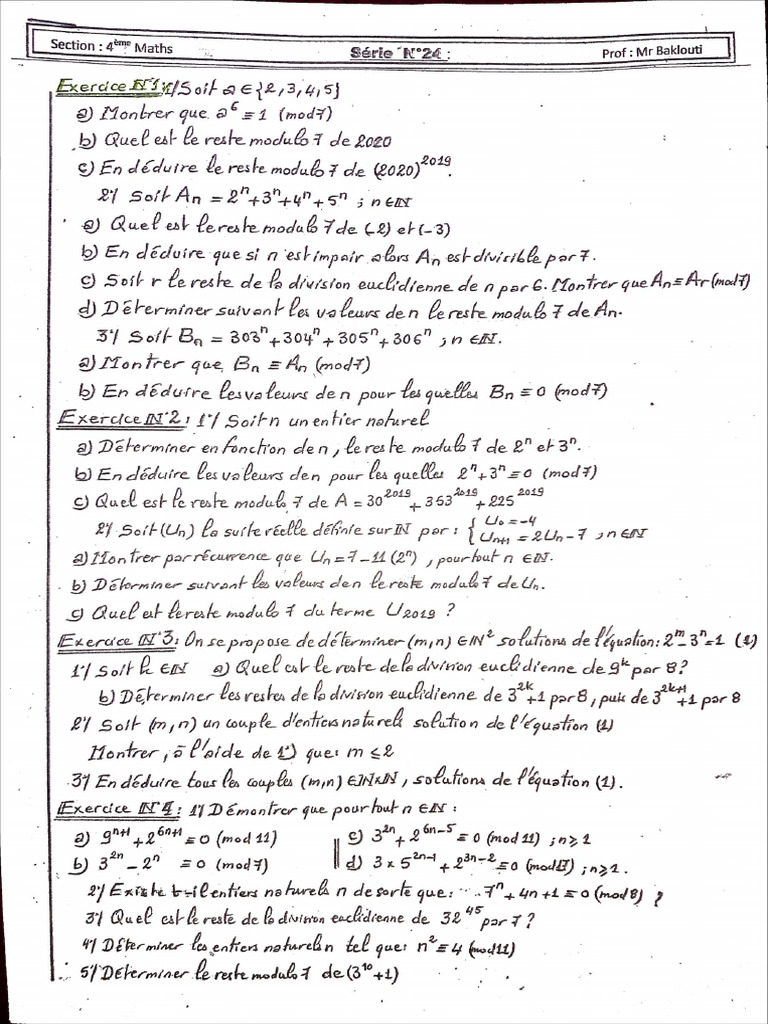 Section : 4ème Maths
Série N°24 :
Prof : Mr Baklouti
Exercice N°1: 1°/ Soit a ∈ {2, 3, 4, 5}
a) Montrer que a⁶ ≡ 1 (mod 7)
b) Quel est le reste modulo 7 de 2020
c) En déduire le reste modulo 7 de (2020)²⁰¹⁹.
2°/ Soit An = 2ⁿ + 3ⁿ + 4ⁿ + 5ⁿ ; n ∈ ℕ
a) Quel est le reste modulo 7 de (-2) et (-3)
b) En déduire que si n est impair alors An est divisible par 7.
c) Soit r le reste de la division euclidienne de n par 6. Montrer que An ≡ Ar (mod 7)
d) Déterminer suivant les valeurs de n le reste modulo 7 de An.
3°/ Soit Bn = 303ⁿ + 304ⁿ + 305ⁿ + 306ⁿ ; n ∈ ℕ.
a) Montrer que Bn ≡ An (mod 7)
b) En déduire les valeurs de n pour les quelles Bn ≡ 0 (mod 7)
Exercice N°2 : 1°/ Soit n un entier naturel
a) Déterminer en fonction de n, le reste modulo 7 de 2ⁿ et 3ⁿ.
b) En déduire les valeurs de n pour les quelles 2ⁿ + 3ⁿ ≡ 0 (mod 7)
c) Quel est le reste modulo 7 de A = 30²⁰¹⁹ + 353²⁰¹⁹ + 225²⁰¹⁹
2°/ Soit (Un) la suite réelle définie sur ℕ par : { U₀ = -4
Un+1 = 2Un - 7 ; n ∈ ℕ
a) Montrer par récurrence que Un = 7 - 11 (2ⁿ) , pour tout n ∈ ℕ.
b) Déterminer suivant les valeurs de n le reste modulo 7 de Un.
c) Quel est le reste modulo 7 du terme U₂₀₁₉ ?
Exercice N°3 : On se propose de déterminer (m, n) ∈ ℕ² solutions de l'équation : 2ᵐ - 3ⁿ = 1 (1)
1°/ Soit k ∈ ℕ a) Quel est le reste de la division euclidienne de 9ᵏ par 8 ?
b) Déterminer les restes de la division euclidienne de 3²ᵏ + 1 par 8, puis de 3²ᵏ⁺¹ + 1 par 8
2°/ Soit (m, n) un couple d'entiers naturels solution de l'équation (1)
Montrer, à l'aide de 1°) que : m ≤ 2
3°/ En déduire tous les couples (m, n) ∈ ℕ×ℕ, solutions de l'équation (1).
Exercice N°4 : 1°/ Démontrer que pour tout n ∈ ℕ :
a) 9ⁿ⁺¹ + 2⁶ⁿ⁺¹ ≡ 0 (mod 11)
b) 3²ⁿ - 2ⁿ ≡ 0 (mod 7)
c) 3²ⁿ + 2⁶ⁿ⁻⁵ ≡ 0 (mod 11) ; n ≥ 1
d) 3 × 5²ⁿ⁻¹ + 2³ⁿ⁻² ≡ 0 (mod 17) ; n ≥ 1.
2°/ Existe t-il entiers naturels n de sorte que : 7ⁿ + 4n + 1 ≡ 0 (mod 8) ?
3°/ Quel est le reste de la division euclidienne de 32⁴⁵ par 7 ?
4°/ Déterminer les entiers naturels n tel que : n² ≡ 4 (mod 11)
5°/ Déterminer le reste modulo 7 de (3¹⁰ + 1)